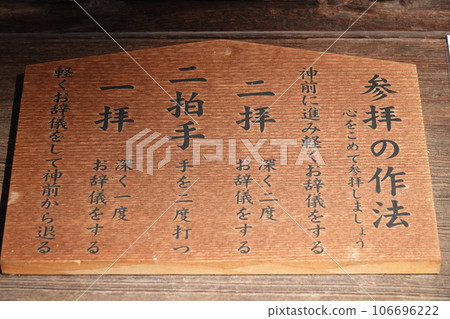 参拝の作法
心をこめて参拝しましょう
神前に進み軽くお辞儀をする
二拝
深く二度
お辞儀をする
二拍手
手を二度打つ
一拝
深く一度
お辞儀をする
軽くお辞儀をして神前から退る
106696222